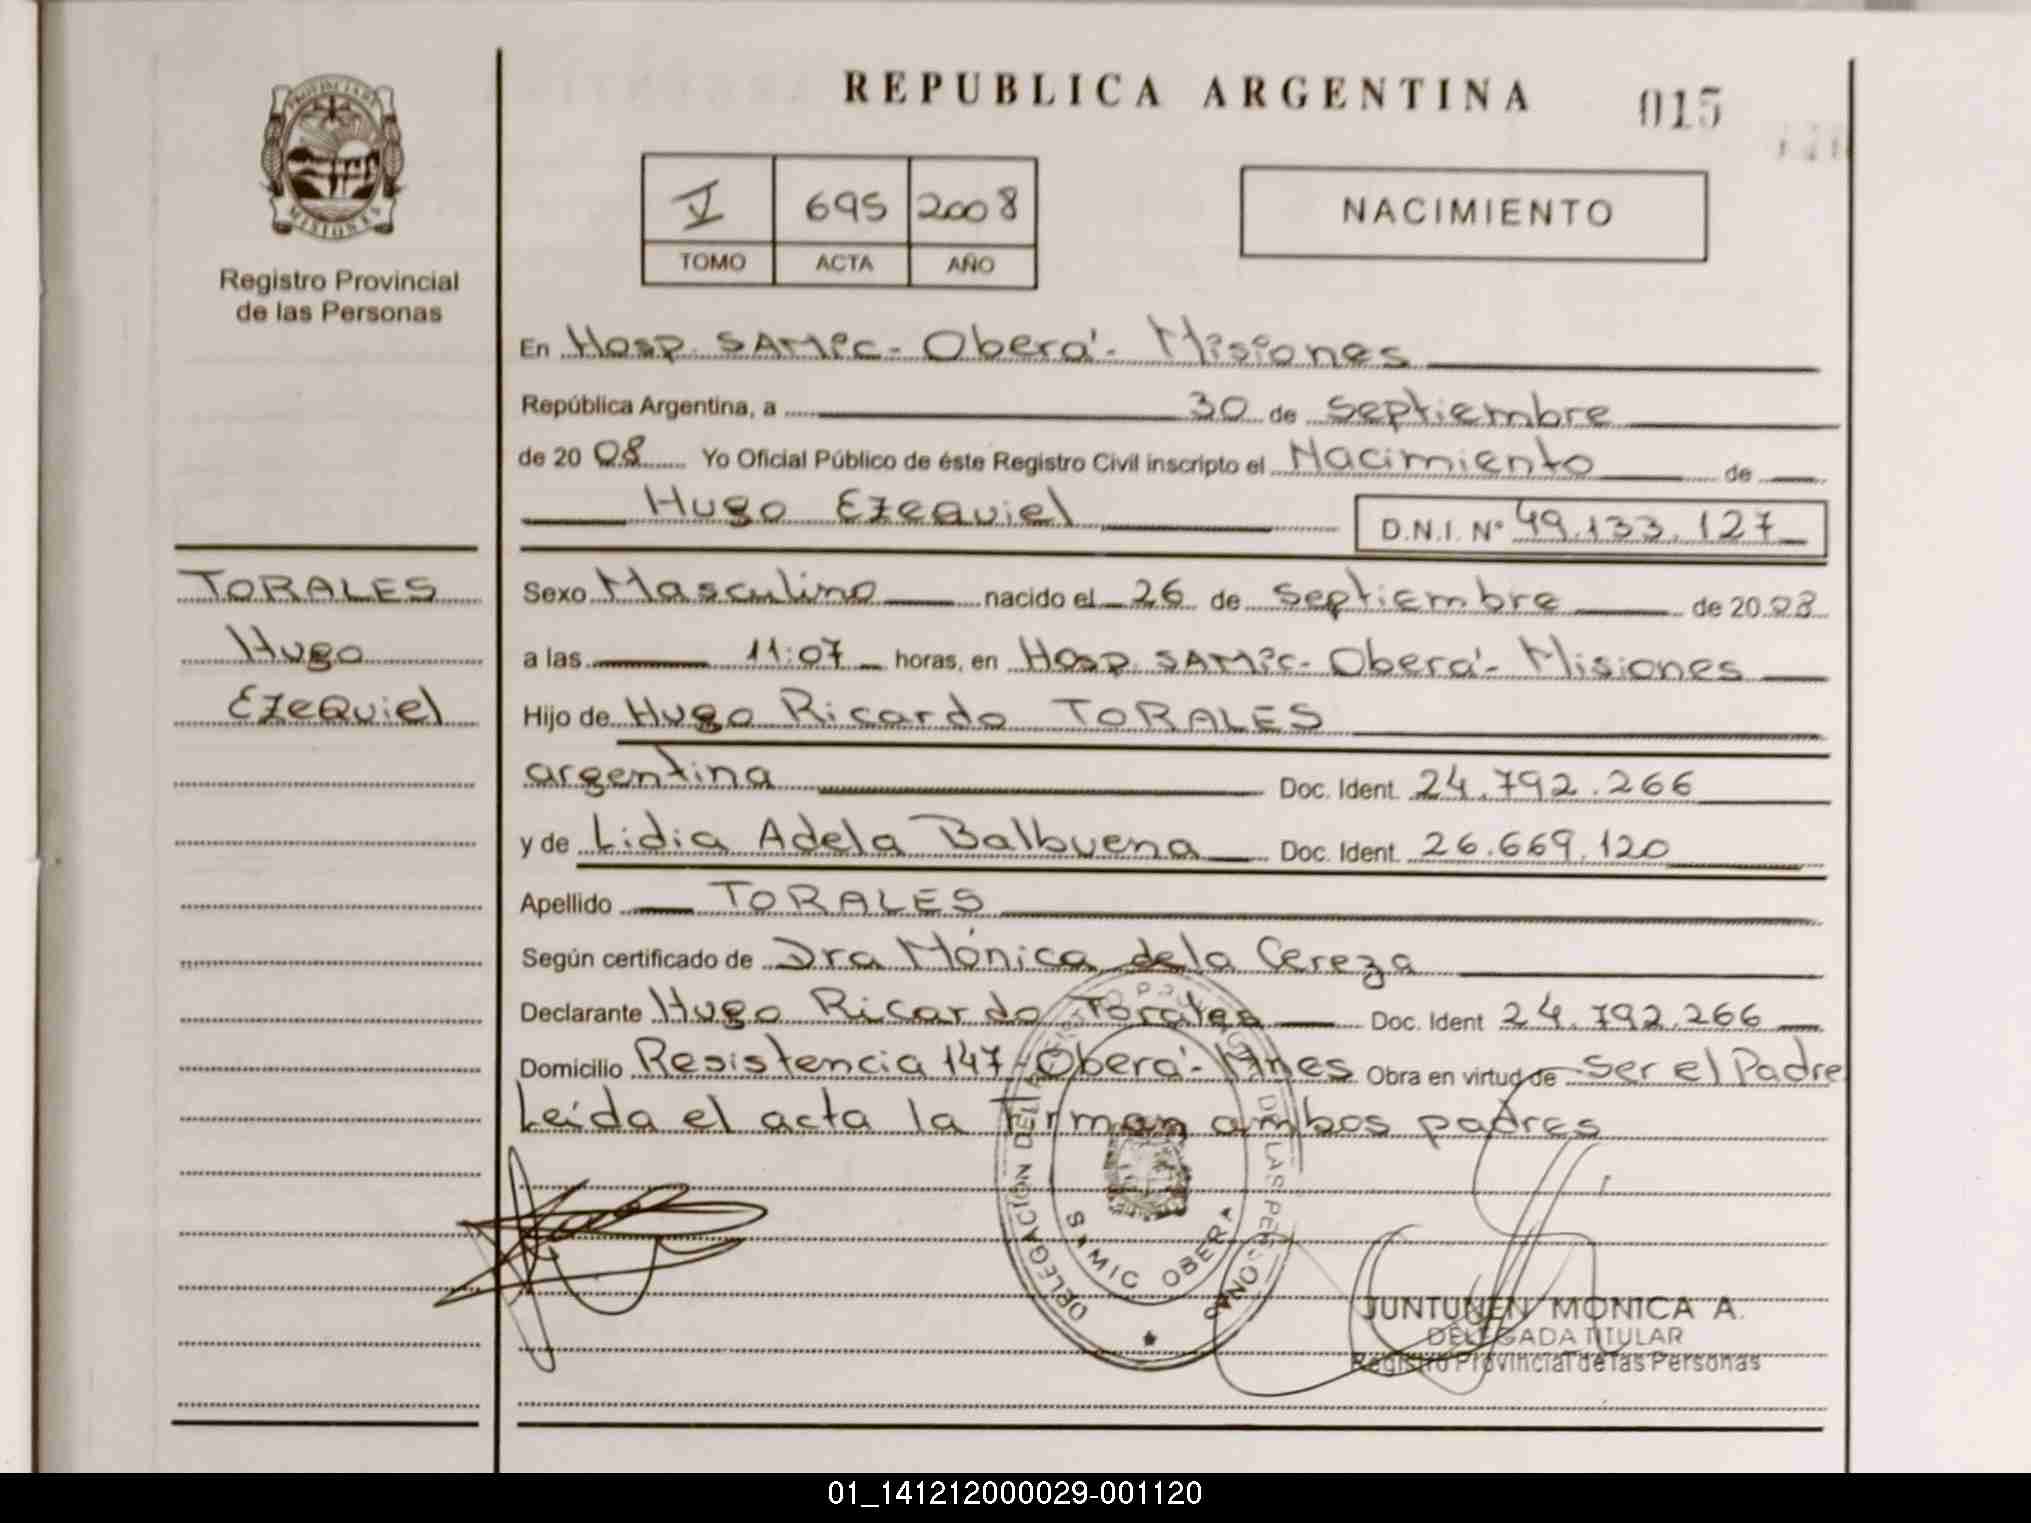 REPUBLICA ARGENTINA
015
PROVINCIA DE MISIONES
Registro Provincial
de las Personas
V 695 2008
TOMO ACTA AÑO
NACIMIENTO
En Hosp. SAMIC - Oberá - Misiones
República Argentina, a 30 de septiembre
de 2008 Yo Oficial Público de éste Registro Civil inscripto el Nacimiento de
Hugo Ezequiel D.N.I. N° 49.133.127
TORALES
Hugo
Ezequiel
Sexo Masculino nacido el 26 de septiembre de 2008
a las 11:07 horas, en Hosp. SAMIC - Oberá - Misiones
Hijo de Hugo Ricardo TORALES
argentina Doc. Ident. 24.792.266
y de Lidia Adela Balbuena Doc. Ident. 26.669.120
Apellido TORALES
Según certificado de Dra Mónica de la Cereza
Declarante Hugo Ricardo Torales Doc. Ident 24.792.266
Domicilio Resistencia 147 - Oberá - Mnes Obra en virtud de ser el Padre
Leída el acta la firman ambos padres
DELEGACION DEL DE LAS PERSONAS
SAMIC OBERA
JUNTUNEN MONICA A.
DELEGADA TITULAR
Registro Provincial de las Personas
01_141212000029-001120